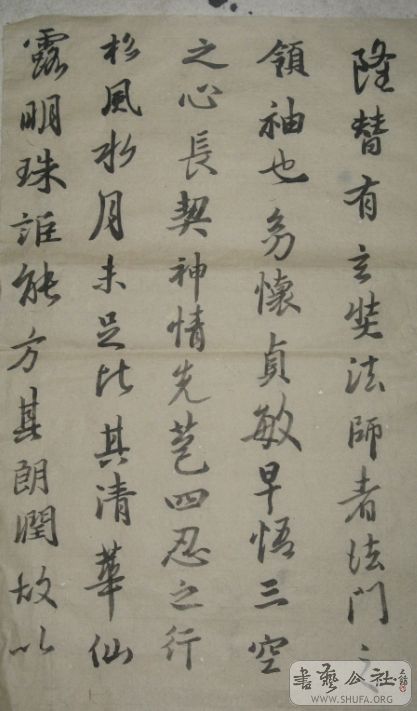 隆替有玄奘法師者法門之
領袖也幼懷貞敏早悟三空
之心長契神情先苞四忍之行
松風水月未足比其清華仙
露明珠詎能方其朗潤故以
書藝公社
WWW.SHUFA.ORG